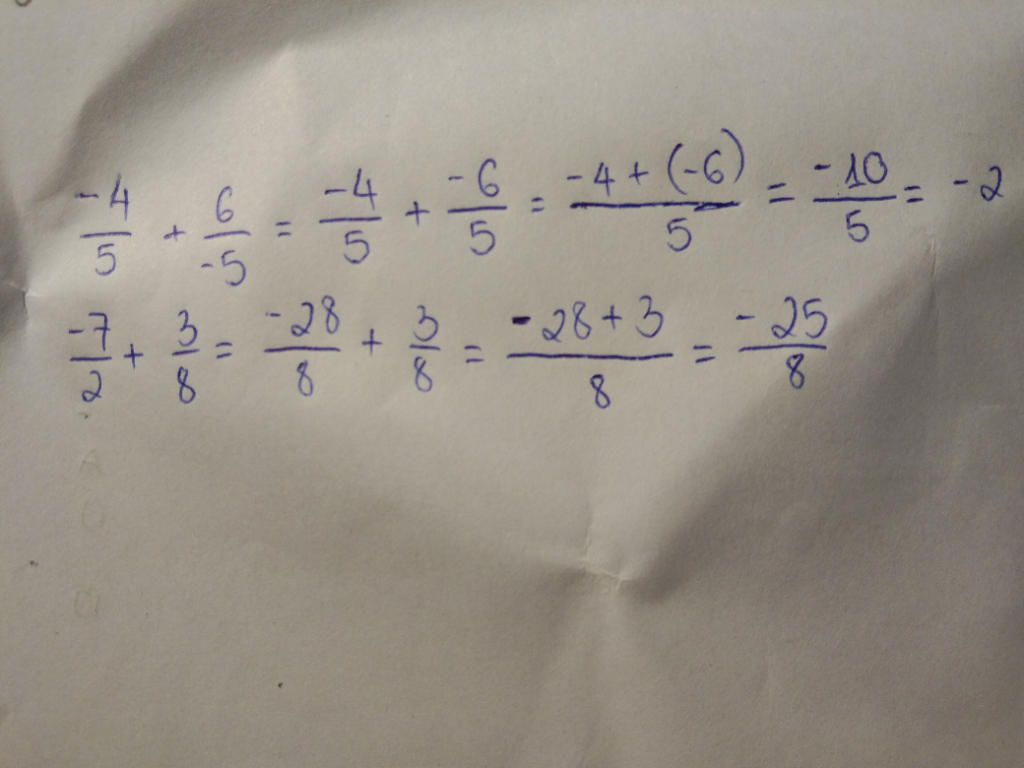 -4/5 + 6/-5 = -4/5 + -6/5 = -4+(-6)/5 = -10/5 = -2
-7/2 + 3/8 = -28/8 + 3/8 = -28+3/8 = -25/8